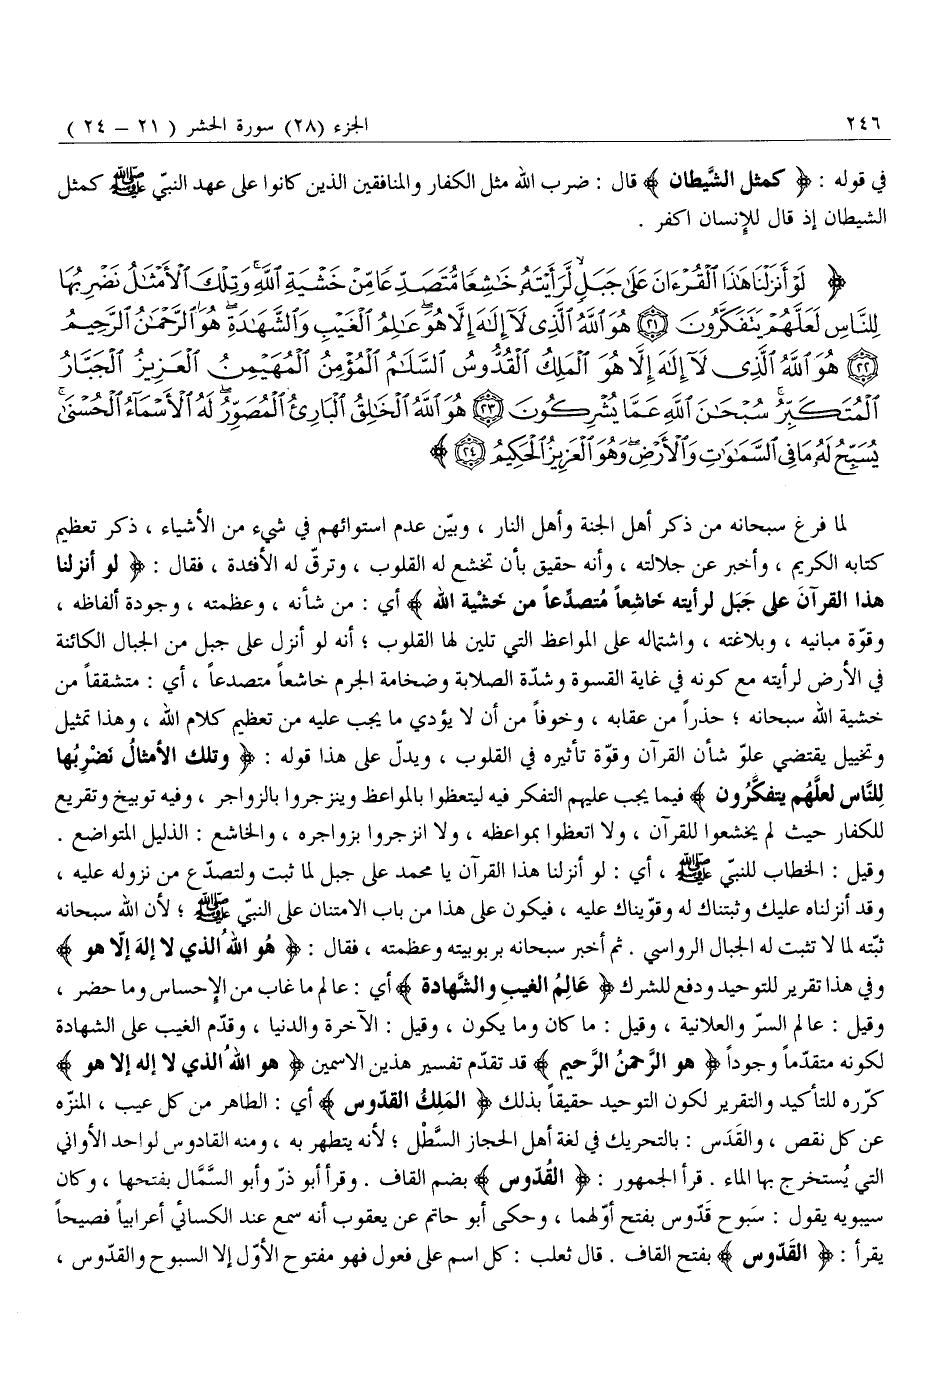 ٢٤٦ الجزء (٢٨) سورة الحشر ( ٢١ – ٢٤ )
في قوله : ﴿ كمثل الشَّيطان ﴾ قال : ضرب الله مثل الكفار والمنافقين الذين كانوا على عهد النبيّ ﷺ كمثل
الشيطان إذ قال للإنسان اكفر .
﴿ لَوْ أَنزَلْنَا هَٰذَا ٱلْقُرْءَانَ عَلَىٰ جَبَلٍ لَّرَأَيْتَهُۥ خَٰشِعًا مُّتَصَدِّعًا مِّنْ خَشْيَةِ ٱللَّهِ ۚ وَتِلْكَ ٱلْأَمْثَٰلُ نَضْرِبُهَا
لِلنَّاسِ لَعَلَّهُمْ يَتَفَكَّرُونَ ﴿٢١﴾ هُوَ ٱللَّهُ ٱلَّذِى لَآ إِلَٰهَ إِلَّا هُوَ ۖ عَٰلِمُ ٱلْغَيْبِ وَٱلشَّهَٰدَةِ ۖ هُوَ ٱلرَّحْمَٰنُ ٱلرَّحِيمُ
﴿٢٢﴾ هُوَ ٱللَّهُ ٱلَّذِى لَآ إِلَٰهَ إِلَّا هُوَ ٱلْمَلِكُ ٱلْقُدُّوسُ ٱلسَّلَٰمُ ٱلْمُؤْمِنُ ٱلْمُهَيْمِنُ ٱلْعَزِيزُ ٱلْجَبَّارُ
ٱلْمُتَكَبِّرُ ۚ سُبْحَٰنَ ٱللَّهِ عَمَّا يُشْرِكُونَ ﴿٢٣﴾ هُوَ ٱللَّهُ ٱلْخَٰلِقُ ٱلْبَارِئُ ٱلْمُصَوِّرُ ۖ لَهُ ٱلْأَسْمَآءُ ٱلْحُسْنَىٰ ۚ
يُسَبِّحُ لَهُۥ مَا فِى ٱلسَّمَٰوَٰتِ وَٱلْأَرْضِ ۖ وَهُوَ ٱلْعَزِيزُ ٱلْحَكِيمُ ﴿٢٤﴾ ﴾
لما فرغ سبحانه من ذكر أهل الجنة وأهل النار ، وبيّن عدم استوائهم في شيء من الأشياء ، ذكر تعظيم
كتابه الكريم ، وأخبر عن جلالته ، وأنه حقيق بأن تخشع له القلوب ، وترقّ له الأفئدة ، فقال : ﴿ لو أنزلنا
هذا القرآنَ على جَبَل لرأيته خَاشِعاً مُتصدِّعاً من خَشْية الله ﴾ أي : من شأنه ، وعظمته ، وجودة ألفاظه ،
وقوّة مبانيه ، وبلاغته ، واشتماله على المواعظ التي تلين لها القلوب ؛ أنه لو أنزل على جبل من الجبال الكائنة
في الأرض لرأيته مع كونه في غاية القسوة وشدّة الصلابة وضخامة الجرم خاشعاً متصدعاً ، أي : متشققاً من
خشية الله سبحانه ؛ حذراً من عقابه ، وخوفاً من أن لا يؤدي ما يجب عليه من تعظيم كلام الله ، وهذا تمثيل
وتخييل يقتضي علوّ شأن القرآن وقوّة تأثيره في القلوب ، ويدلّ على هذا قوله : ﴿ وتلك الأمثالُ نَضْرِبُها
للنَّاس لعلَّهُم يتفكَّرُون ﴾ فيما يجب عليهم التفكر فيه ليتعظوا بالمواعظ وينزجروا بالزواجر ، وفيه توبيخ وتقريع
للكفار حيث لم يخشعوا للقرآن ، ولا اتعظوا بمواعظه ، ولا انزجروا بزواجره ، والخاشع : الذليل المتواضع .
وقيل : الخطاب للنبيّ ﷺ ، أي : لو أنزلنا هذا القرآن يا محمد على جبل لما ثبت ولتصدّع من نزوله عليه ،
وقد أنزلناه عليك وثبتناك له وقوّيناك عليه ، فيكون على هذا من باب الامتنان على النبيّ ﷺ ؛ لأن الله سبحانه
ثبّته لما لا تثبت له الجبال الرواسي . ثم أخبر سبحانه بربوبيته وعظمته ، فقال : ﴿ هُو اللهُ الذي لا إلهَ إلّا هو ﴾
وفي هذا تقرير للتوحيد ودفع للشرك ﴿ عَالِمُ الغيبِ والشَّهادة ﴾ أي : عالم ما غاب من الإحساس وما حضر ،
وقيل : عالم السرّ والعلانية ، وقيل : ما كان وما يكون ، وقيل : الآخرة والدنيا ، وقدّم الغيب على الشهادة
لكونه متقدّماً وجوداً ﴿ هو الرَّحمنُ الرَّحيم ﴾ قد تقدّم تفسير هذين الاسمين ﴿ هو اللهُ الذي لا إله إلا هو ﴾
كرّره للتأكيد والتقرير لكون التوحيد حقيقاً بذلك ﴿ المَلِكُ القدّوس ﴾ أي : الطاهر من كل عيب ، المنزه
عن كل نقص ، والقَدَس : بالتحريك في لغة أهل الحجاز السَّطْل ؛ لأنه يتطهر به ، ومنه القادوس لواحد الأواني
التي يُستخرج بها الماء . قرأ الجمهور : ﴿ القُدّوس ﴾ بضم القاف . وقرأ أبو ذرّ وأبو السَّمَّال بفتحها ، وكان
سيبويه يقول : سَبوح قَدّوس بفتح أوّلهما ، وحكى أبو حاتم عن يعقوب أنه سمع عند الكسائي أعرابياً فصيحاً
يقرأ : ﴿ القَدّوس ﴾ بفتح القاف . قال ثعلب : كل اسم على فعول فهو مفتوح الأوّل إلا السبوح والقدّوس ،